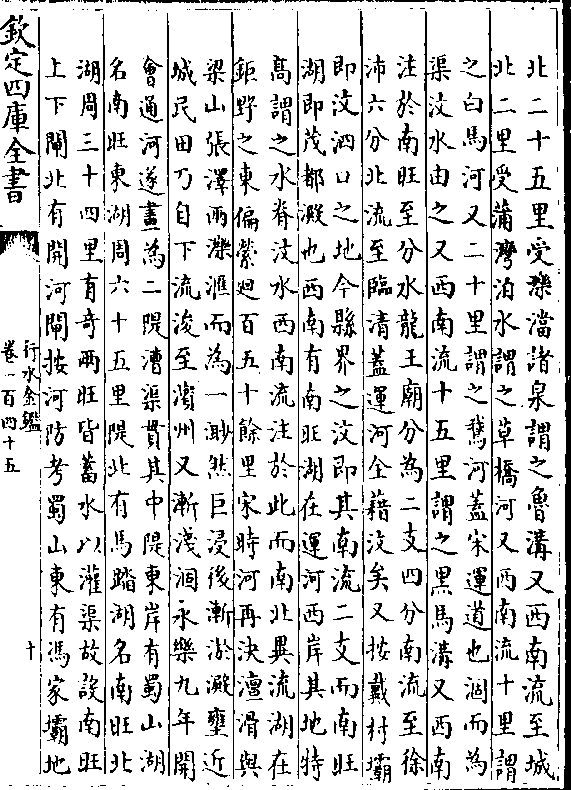 北二十五里受濼澢諸泉謂之魯溝又西南流至城
北二里受蒲灣泊水謂之草橋河又西南流十里謂
之白馬河又二十里謂之鵞河蓋宋運道也涸而為
渠汶水由之又西南流十五里謂之黑馬溝又西南
注於南旺至分水龍王廟分為二支四分南流至徐
沛六分北流至臨清蓋運河全藉汶矣又按戴村壩
即汶泗口之地今縣界之汶即其南流二支而南旺
湖即茂都澱也西南有南旺湖在運河西岸其地特
高謂之水脊汶水西南流注於此而南北異流湖在
鉅野之東偏縈廻百五十餘里宋時河再決澶滑與
梁山張澤兩濼滙而為一渺然巨浸後漸淤澱壅近
城民田乃自下流浚至濱州又漸淺涸永樂九年開
會通河遂畫為二隄漕渠貫其中隄東岸有蜀山湖
名南旺東湖周六十五里隄北有馬踏湖名南旺北
湖周三十四里有奇兩旺皆蓄水以灌渠故設南旺
上下閘北有開河閘按河防考蜀山東有馮家壩地
欽定四庫全書
行水金鑑
卷一百四十五
十